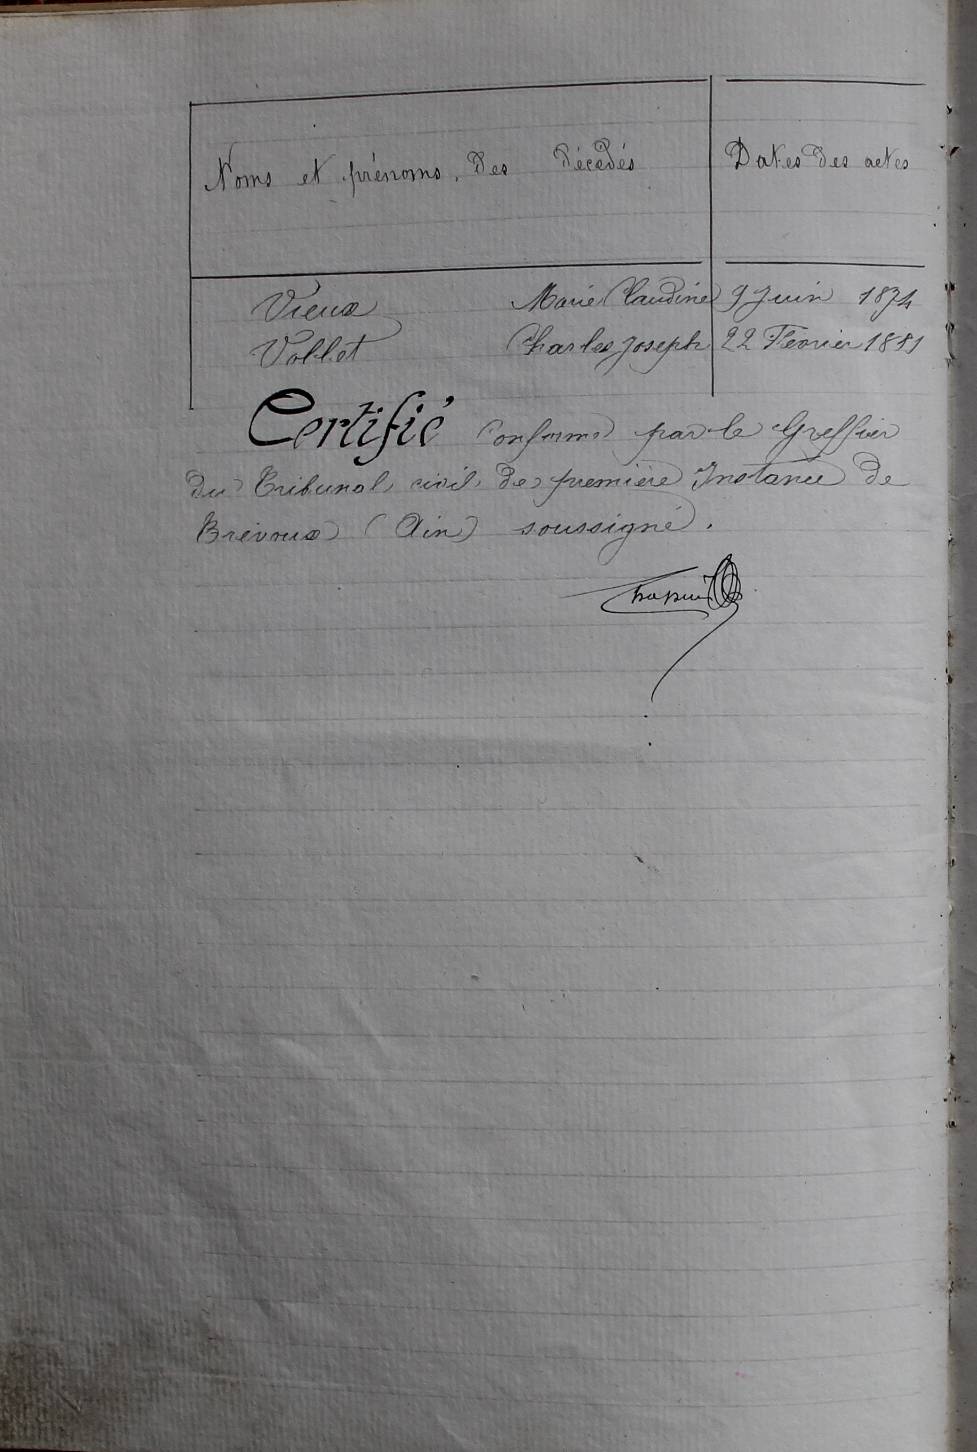 Noms et prénoms des décédés Dates des actes
Vieux Marie Claudine 9 Juin 1874
Vollet Charles Joseph 22 Février 1881
Certifié conforme par le Greffier
du Tribunal civil de première Instance de
Trévoux (Ain) soussigné.